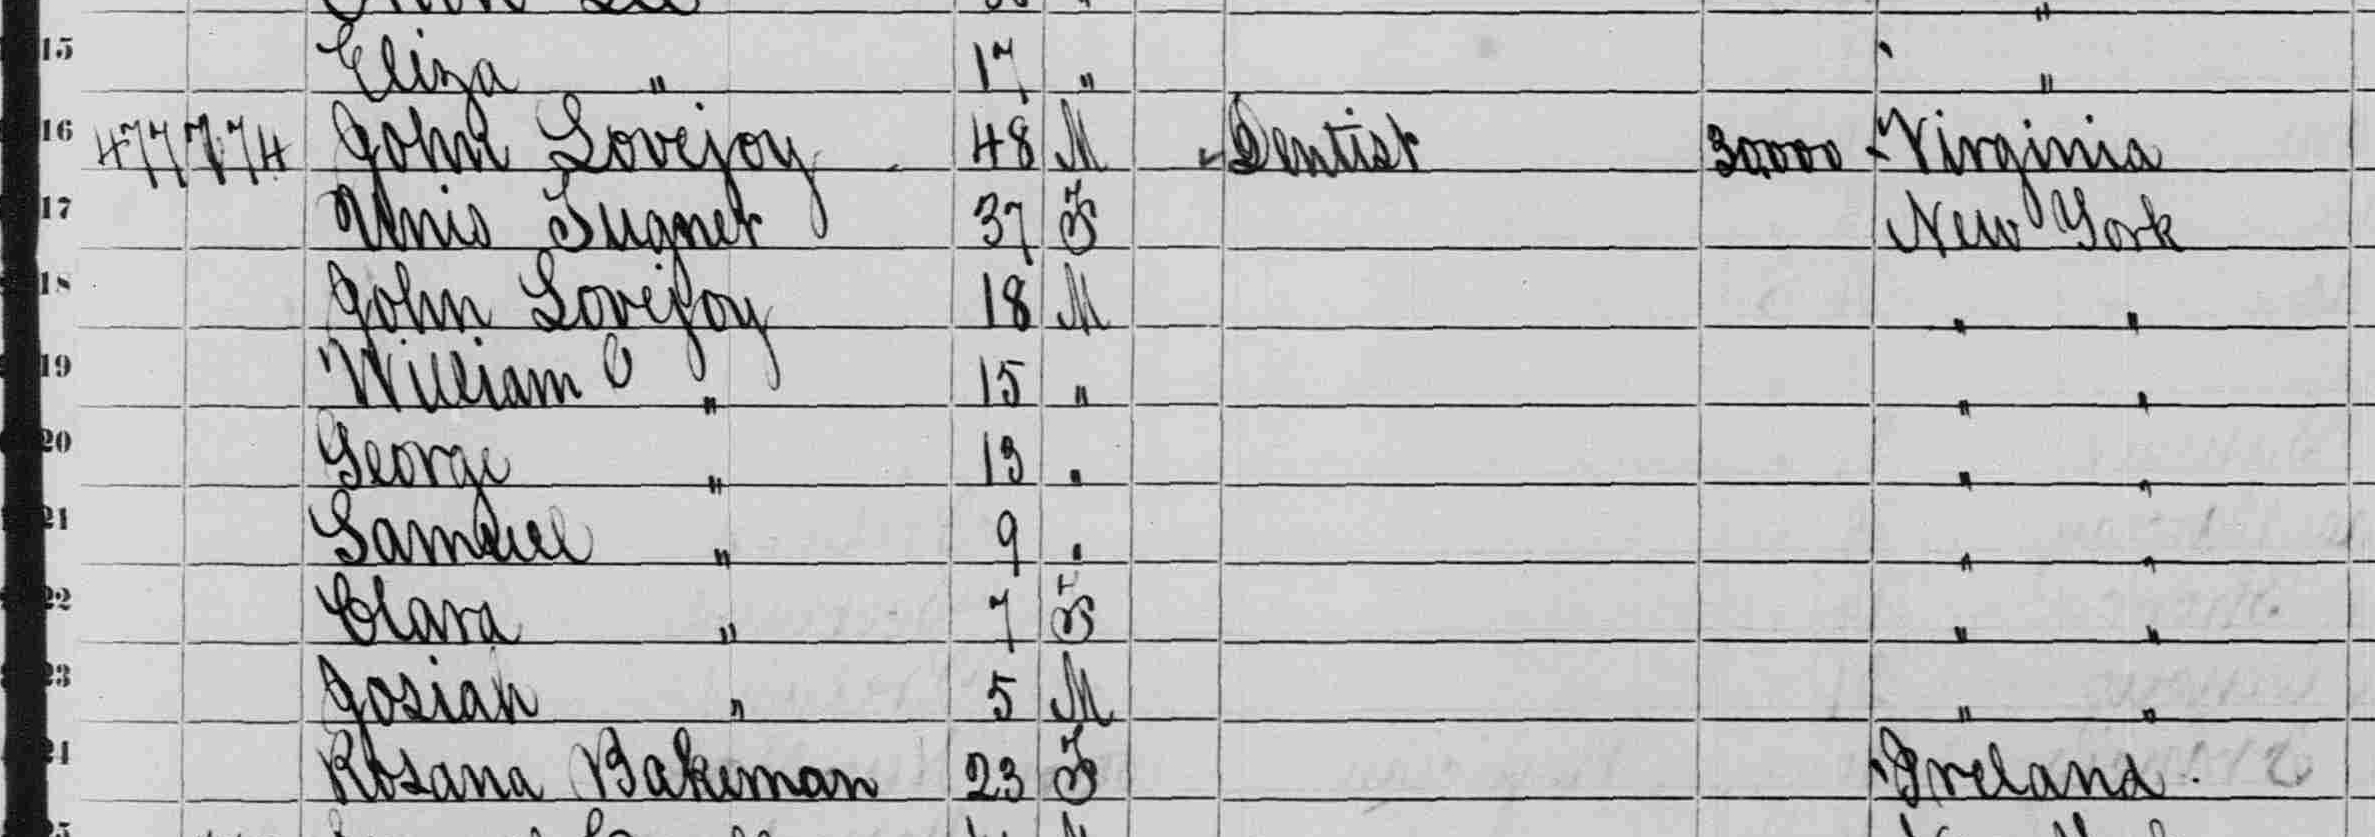 "
15 Eliza " 17 " "
16 477 774 John Lovejoy 48 M Dentist 30,000 Virginia
17 Unis 37 F New York
18 John Lovejoy 18 M " "
19 William " 15 " " "
20 George " 13 " " "
21 Samuel " 9 " " "
22 Clara " 7 F " "
23 Josiah " 5 M " "
24 Rosana Bakeman 23 F Ireland